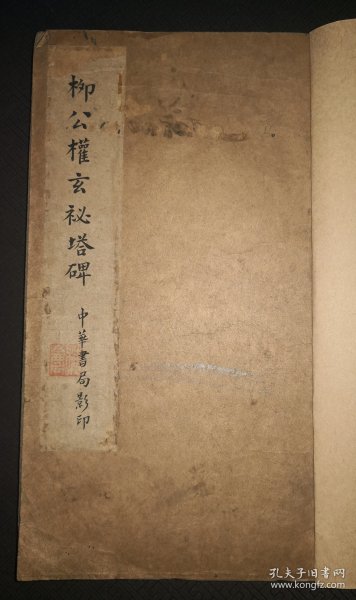 柳公權玄祕塔碑
中華書局影印
孔夫子旧书网
www.kongfz.com